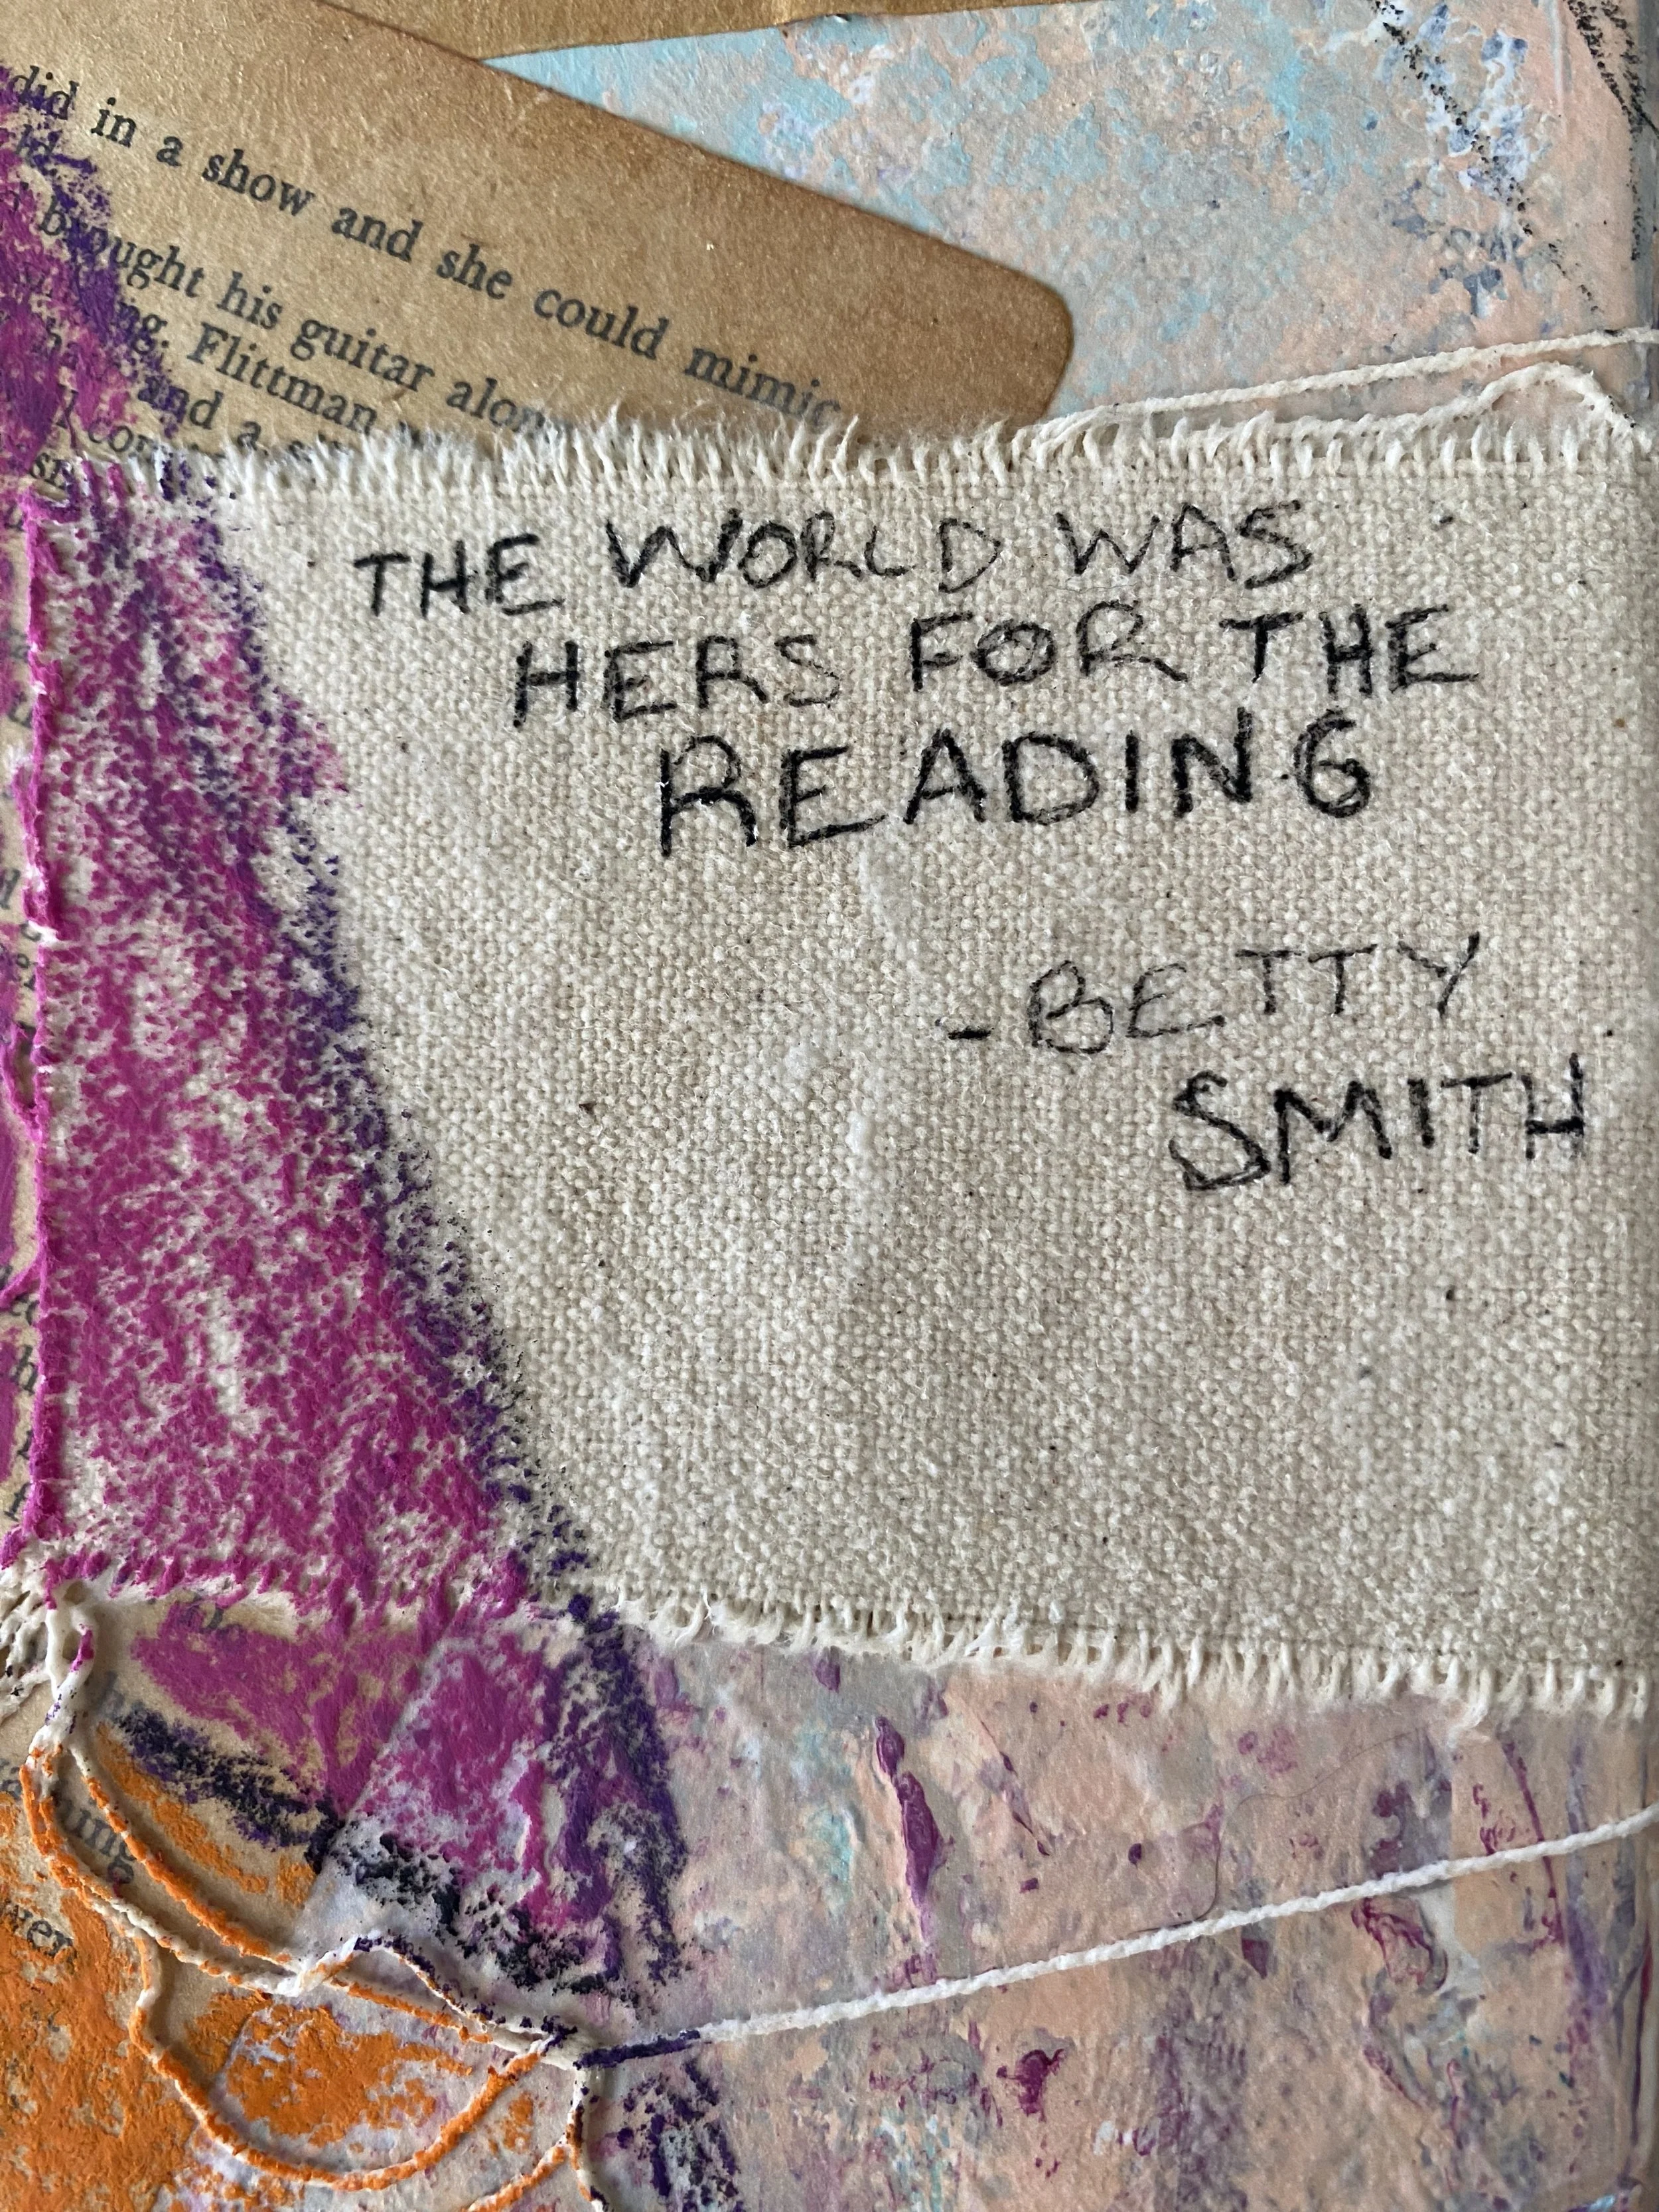 did in a show and she could mimic
brought his guitar along
Flittman
and a
THE WORLD WAS
HERS FOR THE
READING
-BETTY
SMITH